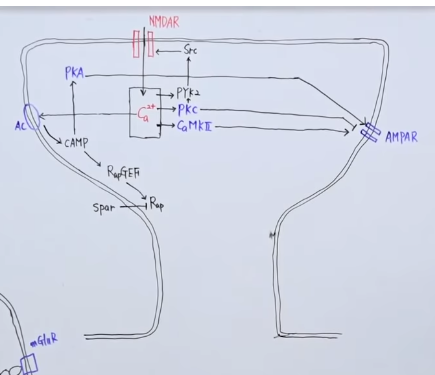 NMDAR
Src
PKA
PYK2
Ca²⁺
PKC
CaMKII
AC
AMPAR
cAMP
RapGEF
Spar
Rap
mGluR